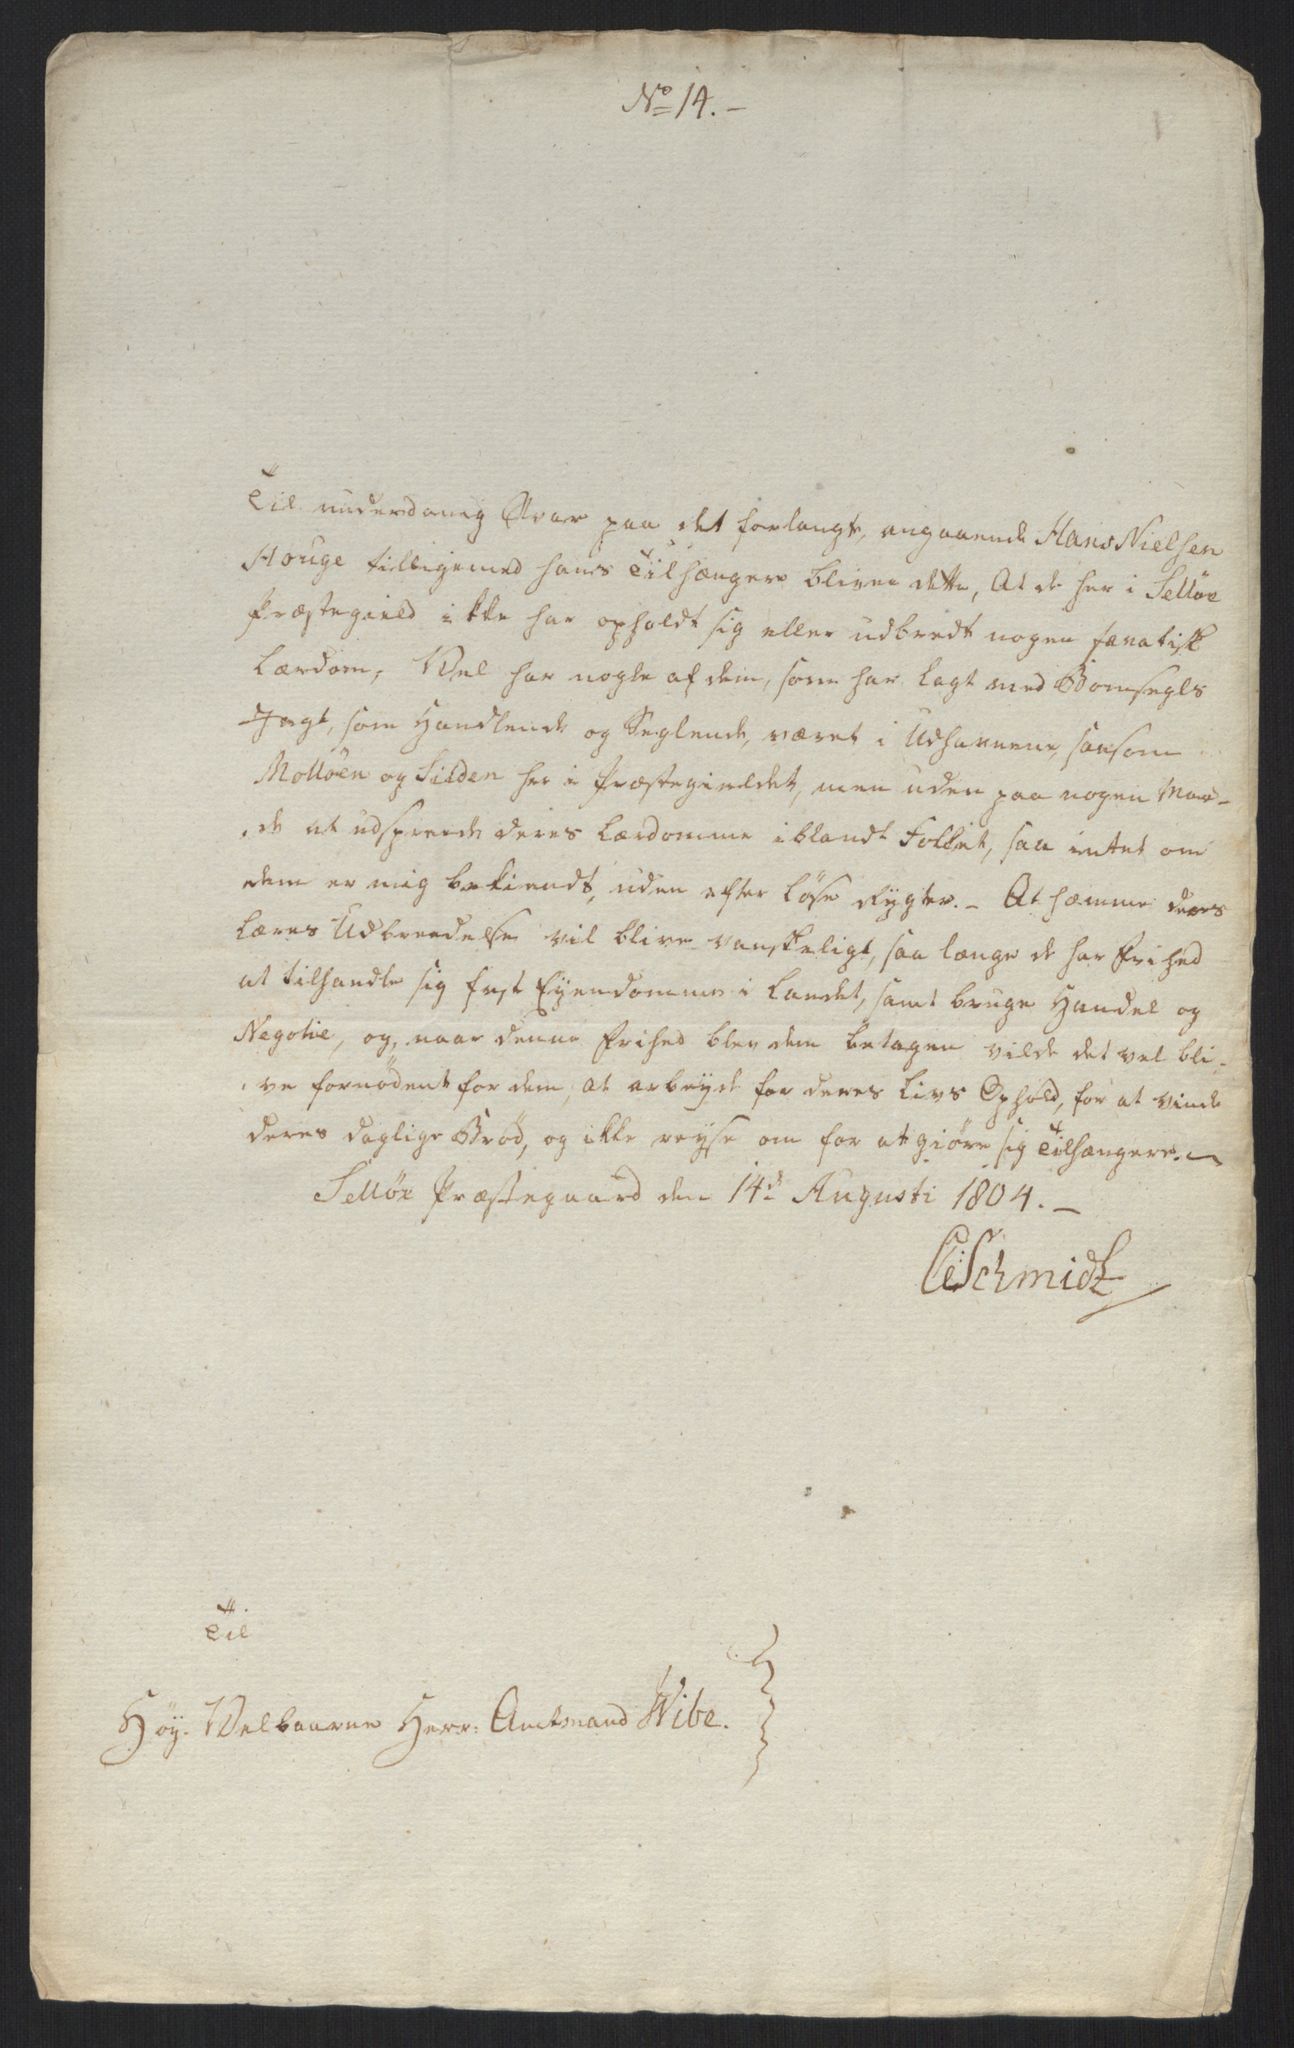 No 14. –
Til underdanig Svar paa det forlangte, angaaende Hans Nielsen
Houge tilligemed hans Tilhængere bliver dette, At de her i Selløe
Præstegield ikke har opholdt sig eller udbredt nogen fanatisk
Lærdom, Vel har nogle af dem, som har lagt med Bomsegls
Jagt, som Handlende og Seglende, været i Udhavnene, saasom
Molløen og Silden her i Præstegieldet, men uden paa nogen Maa-
de at udsprede deres Lærdomme iblandt Folket, saa intet om
dem er mig bekiendt, uden efter løse Rygter. – At hæmme deres
Læres Udbredelse vil blive vanskeligt, saa længe de har Frihed
at tilhandle sig fast Eyendomme i Landet, samt bruge Handel og
Negotie, og, naar denne Frihed blev dem betagen vilde det vel bli-
ve fornødent for dem, at arbeyde for deres Livs Ophold, for at vinde
deres daglige Brød, og ikke reyse om for at giøre sig Tilhængere. –
Selløe Præstegaard den 14de Augusti 1804. –
CSchmidt
Til
Høy-Velbaarne Herr: Amtmand Wibe.